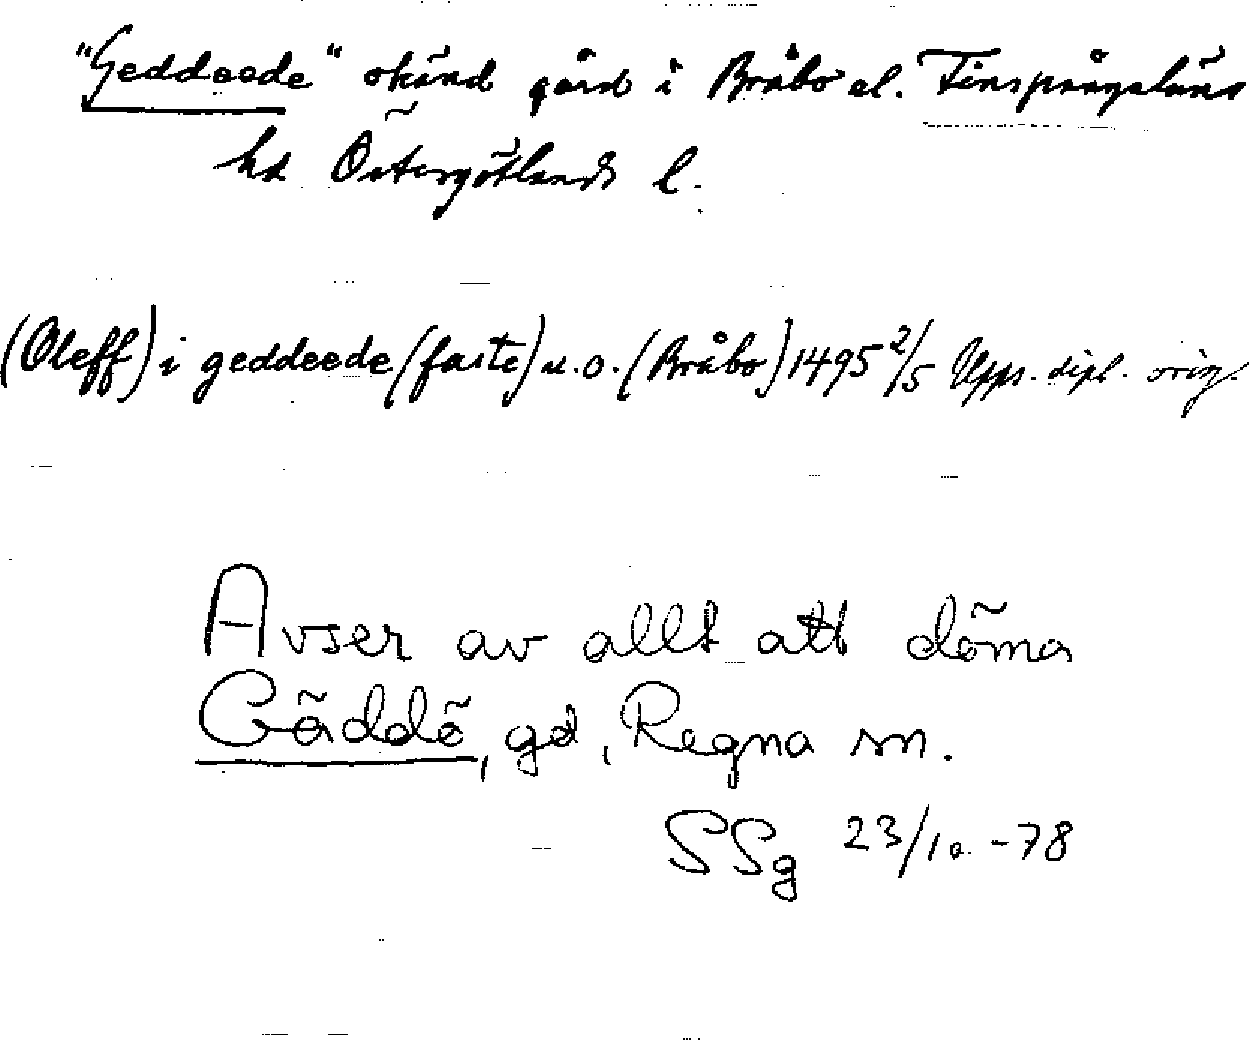 "Geddeede" okänd gård i Bråbo el. Finspångaläns
hd Östergötlands l.
(Oleff) i geddeede (faste) u. o. (Bråbo) 1495 2/5 Upps. dipl. orig.
Avser av allt att döma
Gäddö, gd, Regna sn.
SSg 23/10 -78